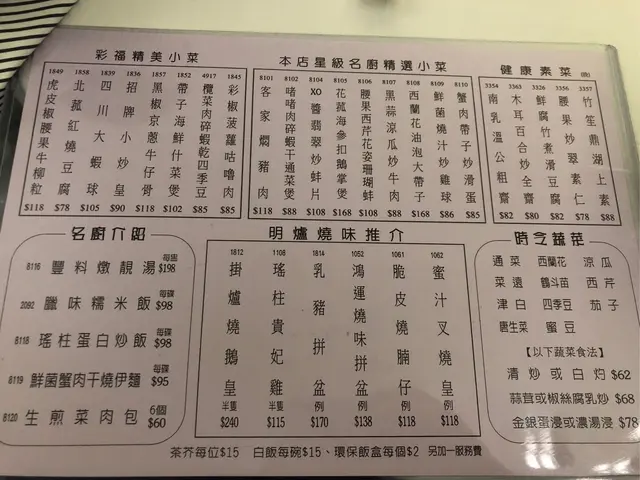 彩福精美小菜
1849 虎皮椒腰果牛柳粒 $118
1858 北菰紅燒豆腐 $78
1839 四川大蝦球 $105
1836 招牌小炒皇 $90
1857 黑椒京蔥牛仔骨 $118
1852 帶子海鮮什菜煲 $102
4917 欖菜肉碎蝦乾四季豆 $85
1845 彩椒菠蘿咕嚕肉 $85
本店星級名廚精選小菜
8101 客家燜豬肉 $118
8102 啫啫肉碎蝦干通菜煲 $88
8104 XO醬翡翠炒蚌片 $108
8105 花菰海參扣鵝掌煲 $168
8106 腰果西芹花姿珊瑚蚌 $108
8107 黑蒜涼瓜炒牛肉 $88
8108 西蘭花油泡大帶子 $168
8109 鮮菌燒汁炒雞球 $86
8110 蟹肉帶子炒滑蛋 $85
健康素菜
3354 南乳溫公粗齋 $82
3363 木耳百合炒全齋 $80
3328 鮮腐竹煮滑豆腐 $82
3356 腰果炒翠素仁 $78
3357 竹笙鼎湖上素 $88
名廚介紹
8116 豐料燉靚湯 每窩 $198
2092 臘味糯米飯 每碟 $98
8118 瑤柱蛋白炒飯 每碟 $98
8119 鮮菌蟹肉干燒伊麵 每碟 $95
8120 生煎菜肉包 6個 $60
明爐燒味推介
1812 掛爐燒鵝皇 半隻 $240
1108 瑤柱貴妃雞 半隻 $115
1814 乳豬拼盆 例 $170
1052 鴻運燒味拼盆 例 $138
1061 脆皮燒腩仔 例 $118
1062 蜜汁叉燒皇 例 $118
時令蔬菜
通菜 西蘭花 涼瓜
菜遠 鶴斗苗 西芹
津白 四季豆 茄子
唐生菜 蜜豆
【以下蔬菜食法】
清炒或白灼 $62
蒜茸或椒絲腐乳炒 $68
金銀蛋浸或濃湯浸 $78
茶芥每位$15 白飯每碗$15、環保飯盒每個$2 另加一服務費